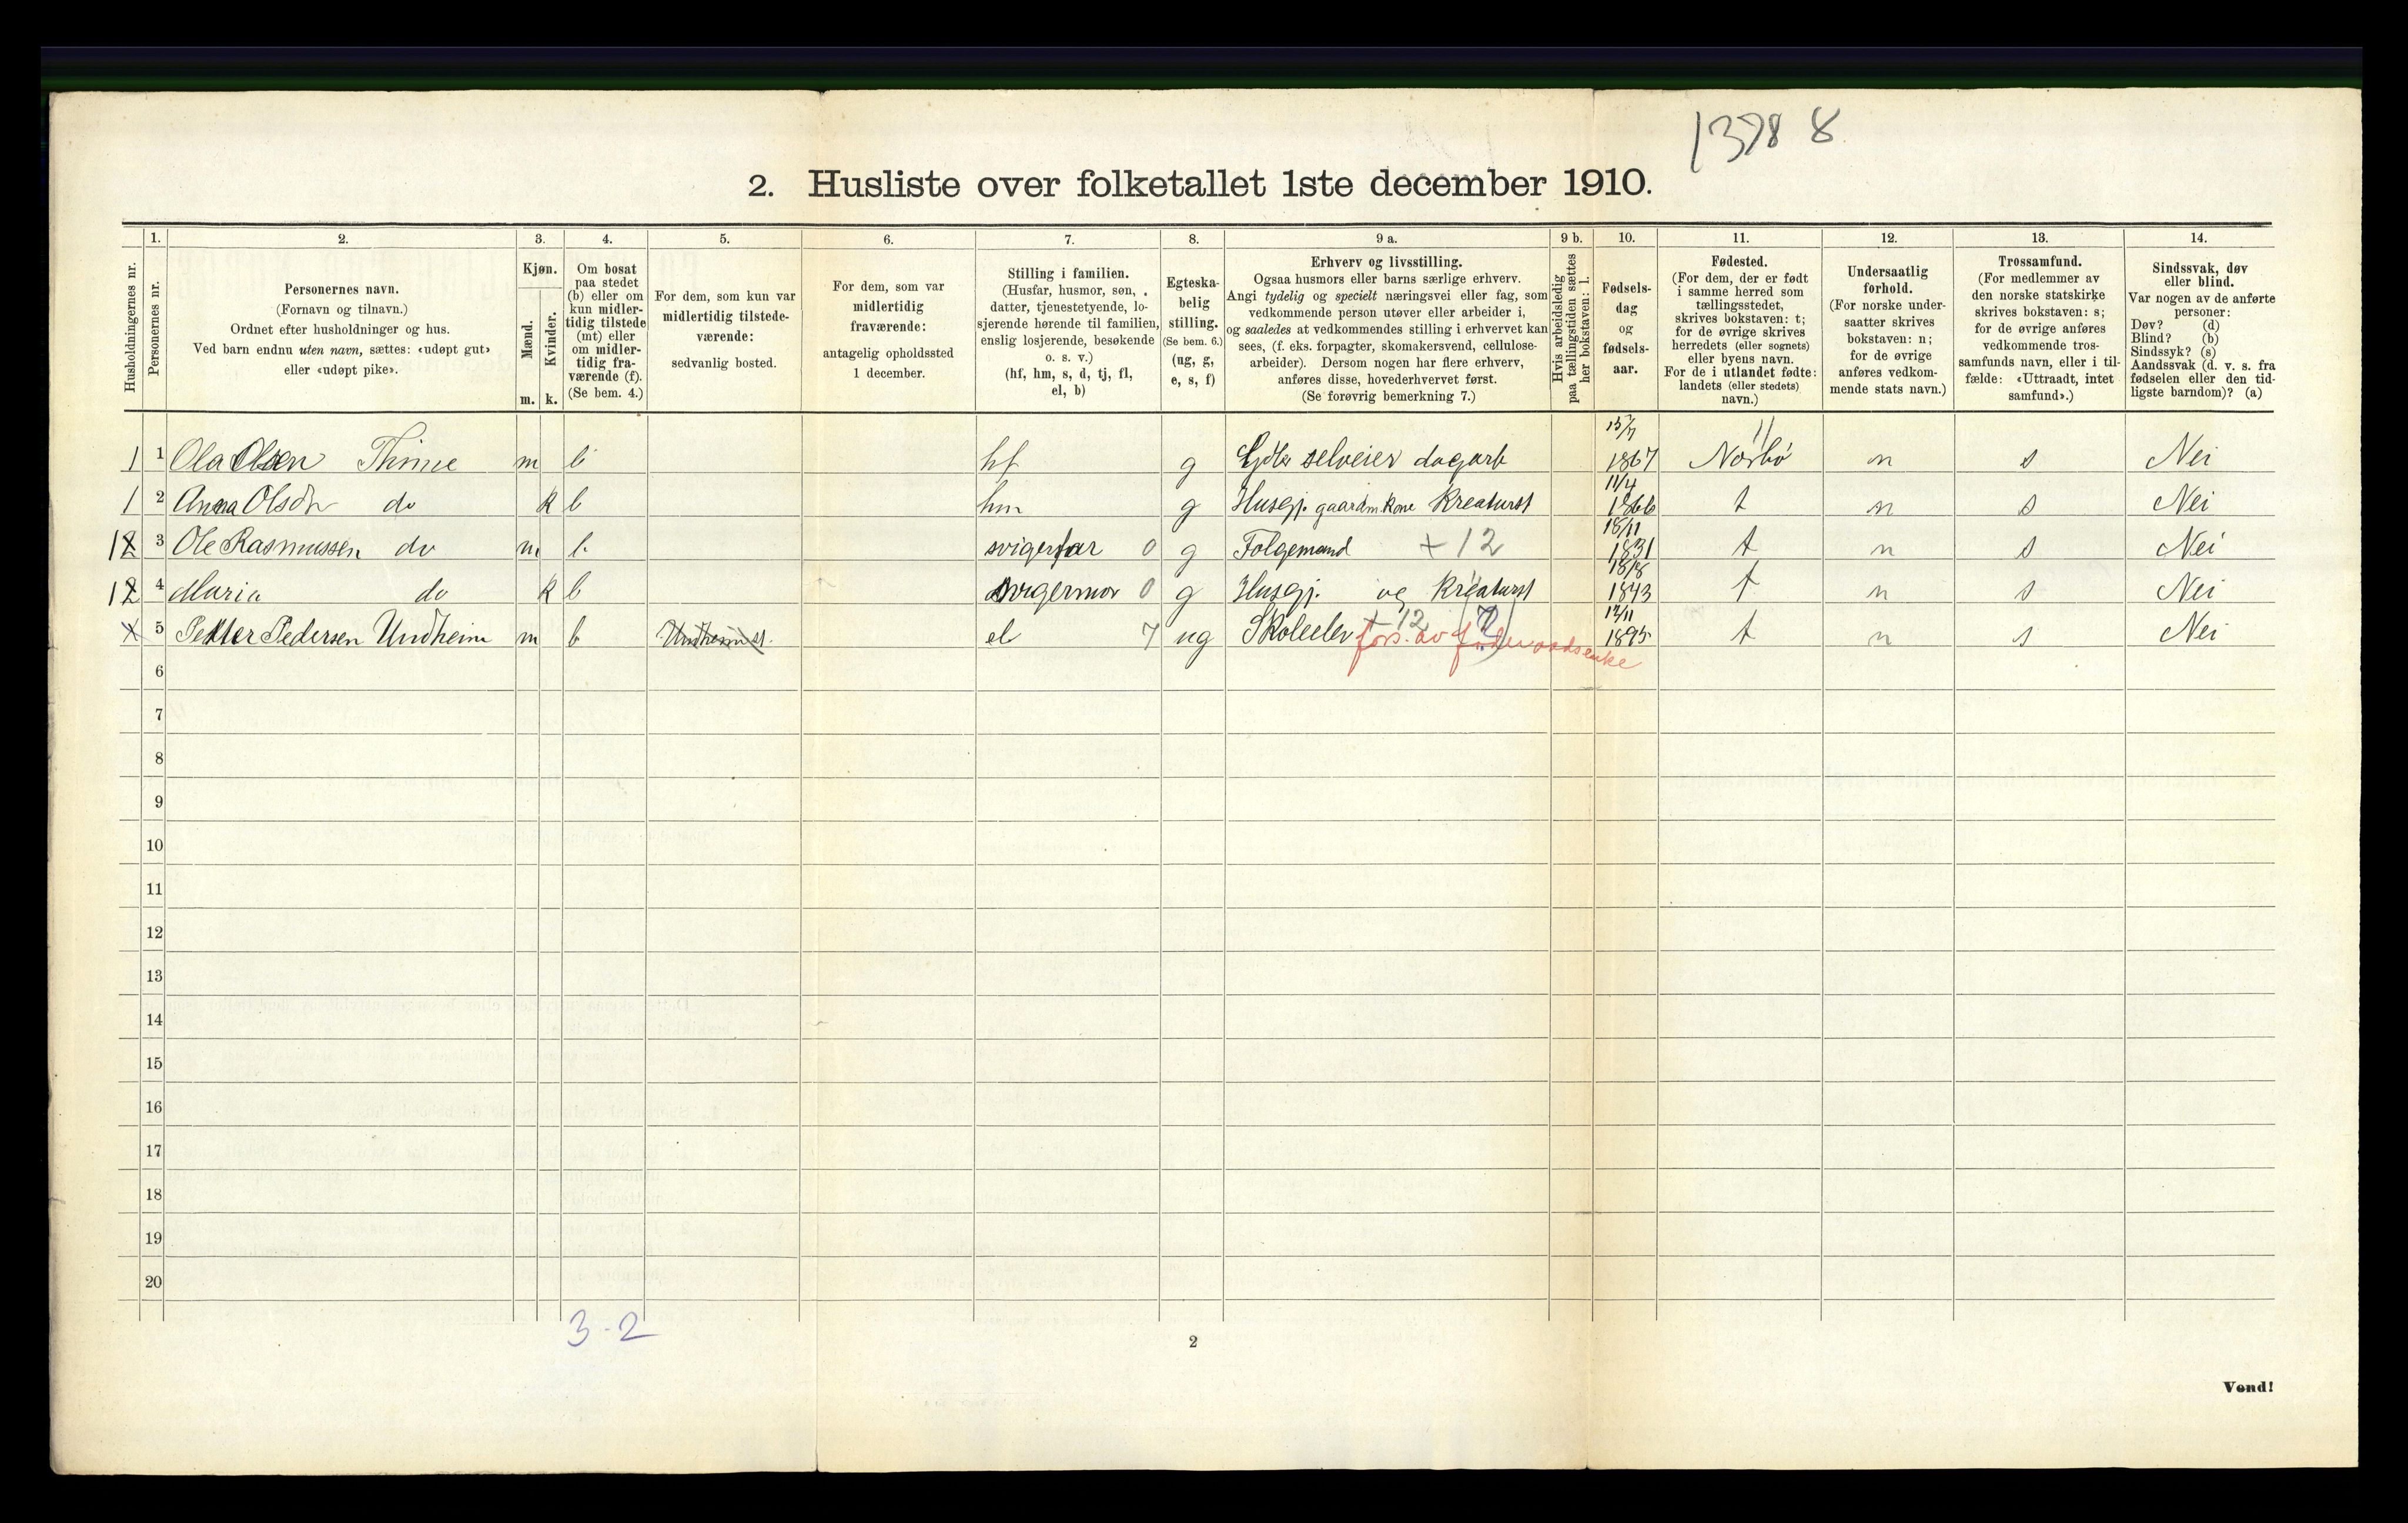 1378 8
2. Husliste over folketallet 1ste december 1910.
1. 2. 3. 4. 5. 6. 7. 8. 9 a. 9 b. 10. 11. 12. 13. 14.
Husholdningernes nr.
Personernes nr.
Personernes navn.
(Fornavn og tilnavn.)
Ordnet efter husholdninger og hus.
Ved barn endnu uten navn, sættes: «udøpt gut»
eller «udøpt pike».
Kjøn.
Mænd.
Kvinder.
m. k.
Om bosat
paa stedet
(b) eller om
kun midler-
tidig tilstede
(mt) eller
om midler-
tidig fra-
værende (f).
(Se bem. 4.)
For dem, som kun var
midlertidig tilstede-
værende:
sedvanlig bosted.
For dem, som var
midlertidig
fraværende:
antagelig opholdssted
1 december.
Stilling i familien.
(Husfar, husmor, søn,
datter, tjenestetyende, lo-
sjerende hørende til familien,
enslig losjerende, besøkende
o. s. v.)
(hf, hm, s, d, tj, fl,
el, b)
Egteska-
belig
stilling.
(Se bem. 6.)
(ug, g,
e, s, f)
Erhverv og livsstilling.
Ogsaa husmors eller barns særlige erhverv.
Angi tydelig og specielt næringsvei eller fag, som
vedkommende person utøver eller arbeider i,
og saaledes at vedkommendes stilling i erhvervet kan
sees, (f. eks. forpagter, skomakersvend, cellulose-
arbeider). Dersom nogen har flere erhverv,
anføres disse, hovederhvervet først.
(Se forøvrig bemerkning 7.)
Hvis arbeidsledig
paa tællingstiden sættes
her bokstaven: l.
Fødsels-
dag
og
fødsels-
aar.
Fødested.
(For dem, der er født
i samme herred som
tællingsstedet,
skrives bokstaven: t;
for de øvrige skrives
herredets (eller sognets)
eller byens navn.
For de i utlandet fødte:
landets (eller stedets)
navn.)
Undersaatlig
forhold.
(For norske under-
saatter skrives
bokstaven: n;
for de øvrige
anføres vedkom-
mende stats navn.)
Trossamfund.
(For medlemmer av
den norske statskirke
skrives bokstaven: s;
for de øvrige anføres
vedkommende tros-
samfunds navn, eller i til-
fælde: «Uttraadt, intet
samfund».)
Sindssvak, døv
eller blind.
Var nogen av de anførte
personer:
Døv? (d)
Blind? (b)
Sindssyk? (s)
Aandssvak (d. v. s. fra
fødselen eller den tid-
ligste barndom)? (a)
1 1 Ola Olsen Thime m b hf g Gdbr selveier dagarb 15/7 1867 Nærbø n s Nei
1 2 Anna Olsdn do k b hm g Husgj. gaardm.kone Kreaturst 11/4 1866 t n s Nei
12 3 Ole Rasmussen do m b svigerfar 0 g Folgemand + 12 18/11 1831 t n s Nei
12 4 Maria do k b svigermor 0 g Husgj. og Kreaturst 18/8 1843 t n s Nei
x 5 Petter Pedersen Undheim m b Undheim st. el 7 ug Skoleelev + 12 fors. av foderaadsenke 12/11 1895 t n s Nei
6
7
8
9
10
11
12
13
14
15
16
17
18
19
20
3 - 2
2
Vend!